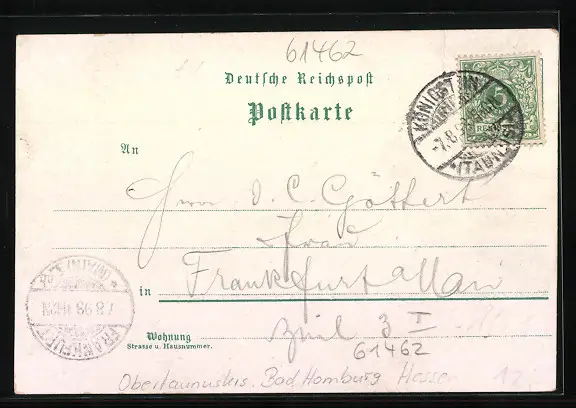 61462
Deutsche Reichspost
Postkarte
KÖNIGSTEIN
-7.8.9
*(TAUNUS)
5
An
Herrn J. C. Göttert
Frau
in Frankfurt a/Main
FRANKFURT
7.8.98
*(MAIN)
Wohnung
Straße u. Hausnummer.
Zeil 3 I
61462
Obertaunuskrs. Bad Homburg Hessen 12